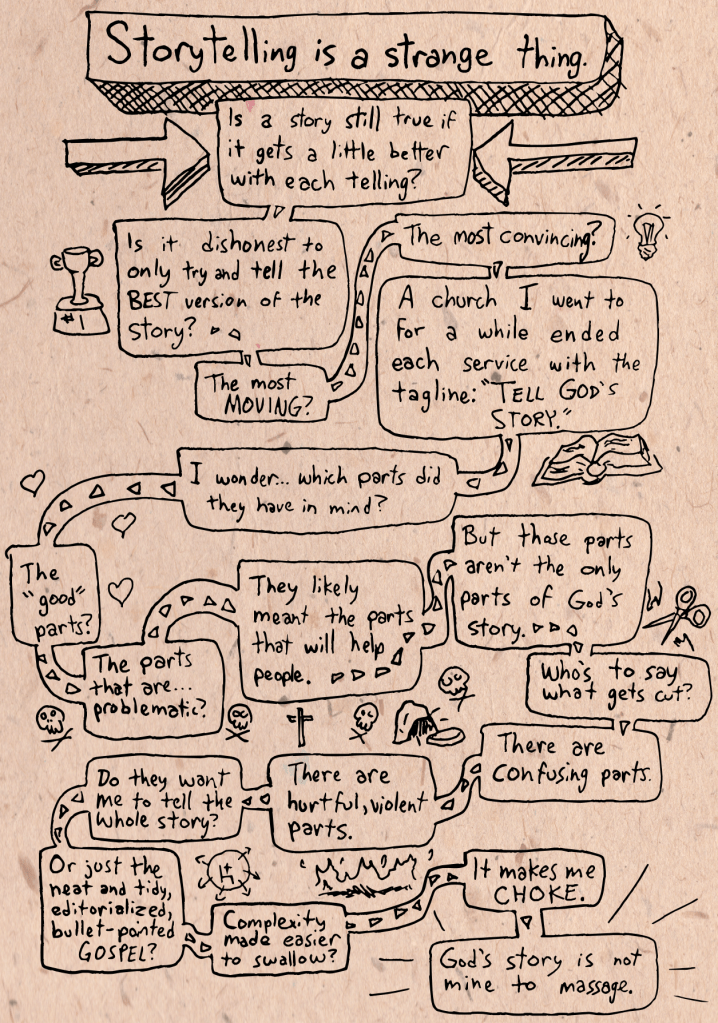 Storytelling is a strange thing.
Is a story still true if
it gets a little better
with each telling?
Is it dishonest to
only try and tell the
BEST version of the
story?
#1
The most
MOVING?
The most convincing?
A church I went to
for a while ended
each service with the
tagline: "TELL GOD'S
STORY."
I wonder... which parts did
they have in mind?
The
"good"
parts?
The parts
that are...
problematic?
They likely
meant the parts
that will help
people.
But those parts
aren't the only
parts of God's
story.
Who's to say
what gets cut?
There are
confusing parts.
There are
hurtful, violent
parts.
Do they want
me to tell the
whole story?
Or just the
neat and tidy,
editorialized,
bullet-pointed
GOSPEL?
Complexity
made easier
to swallow?
It makes me
CHOKE.
God's story is not
mine to massage.